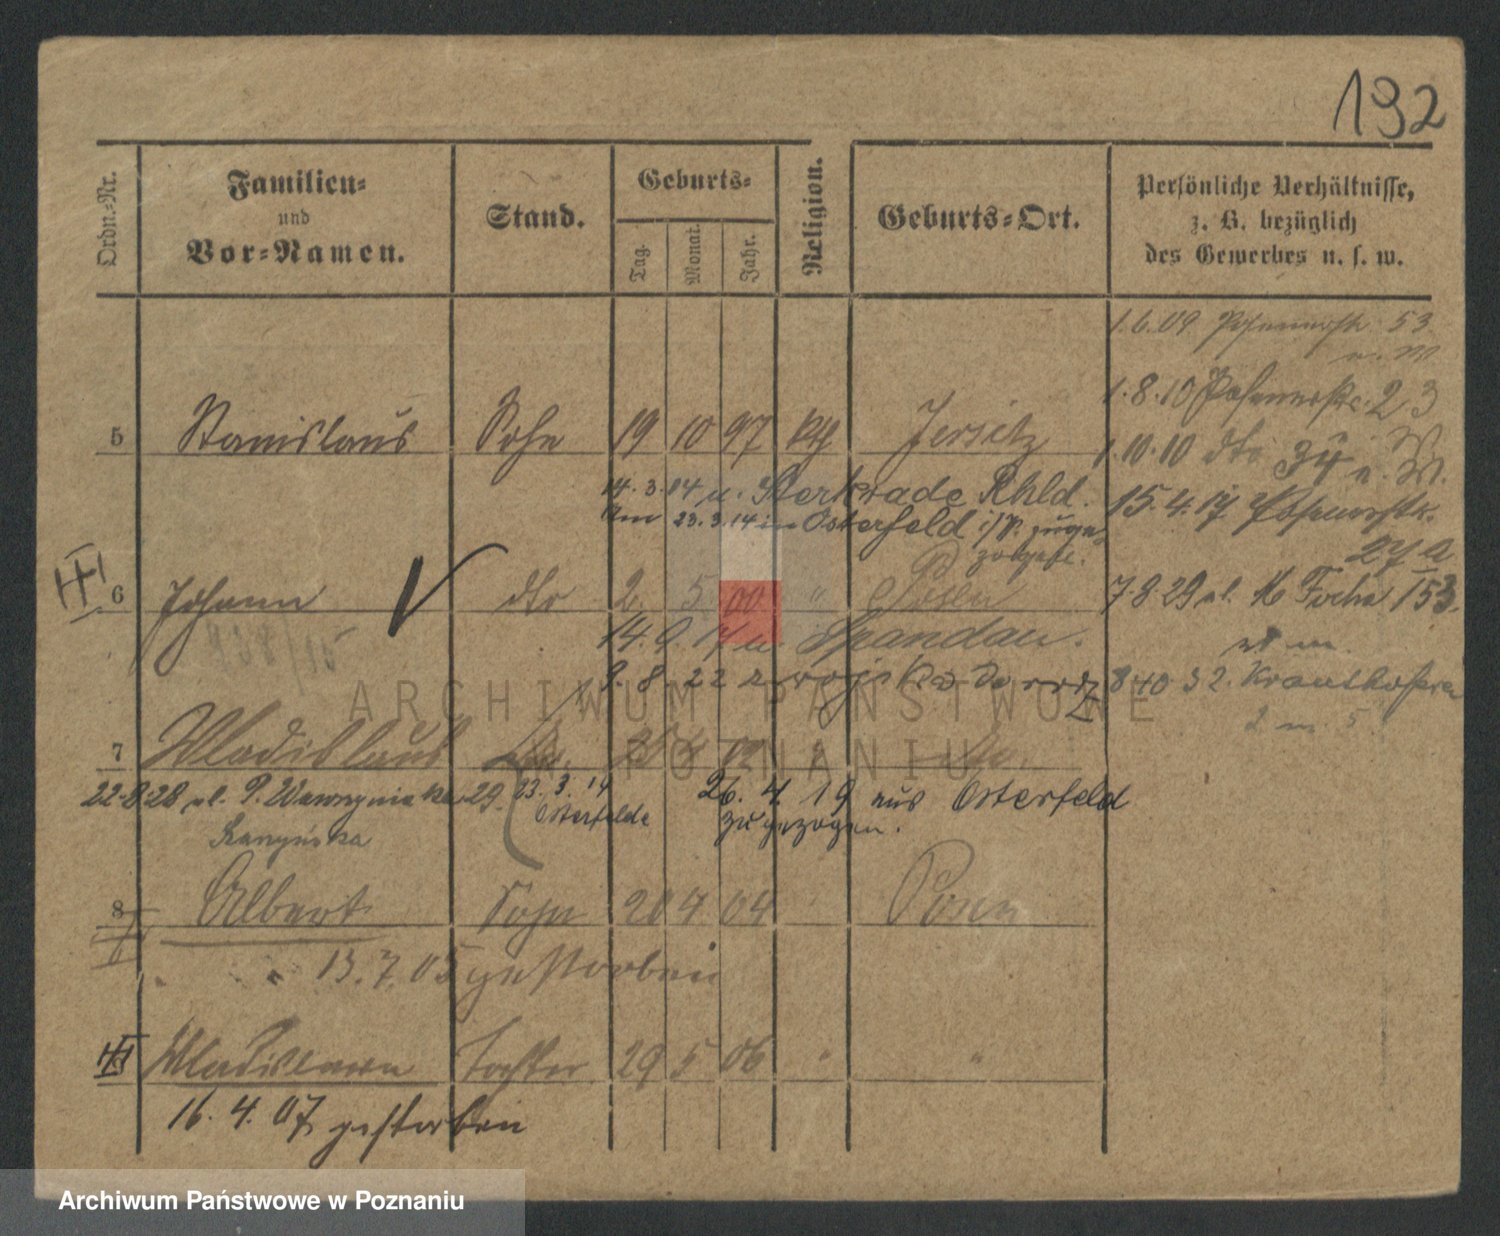 192
Ordn.-Nr.
Familien-
und
Vor-Namen.
Stand.
Geburts-
Tag.
Monat.
Jahr.
Religion.
Geburts-Ort.
Persönliche Verhältnisse,
z. B. bezüglich
des Gewerbes u. s. w.
1.6.09 53
1.8.10 23
5 Stanislaus Sohn 19 10 97 Kth Jersitz
1.10.10 dto 34
14.3.14 u. Sterkrade Rhld.
15.4.17
Am 23.3.14 in Osterfeld zuge-
27a
6 Johann dto 2. 5. 00 " Posen
7.8.29 ul. M Focha 153.
938/15
14.9.17 u. Spandau.
9.8.22 z wojska do
32. Krauthofera
2 m. 5
7 Wladislaus 02 "
22.8.28 ul. P. Wawrzyniaka 29. 23.3.14 26.4.19 aus Osterfeld
Osterfelde zugezogen.
8 Albert Sohn 20 4 04 Posen
13.7.05 gestorben
Wladislawa Tochter 29 5 06 " "
16.4.07 gestorben
ARCHIWUM PAŃSTWOWE
W POZNANIU
Archiwum Państwowe w Poznaniu